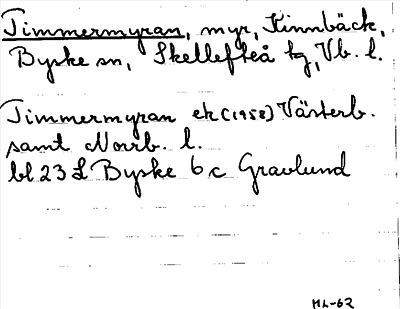 Timmermyran, myr, Kinnbäck,
Byske sn, Skellefteå tg, Vb. l.
Timmermyran ek (1958) Västerb.
samt Norrb. l.
bl 23 L Byske 6 c Gravlund
ML-62